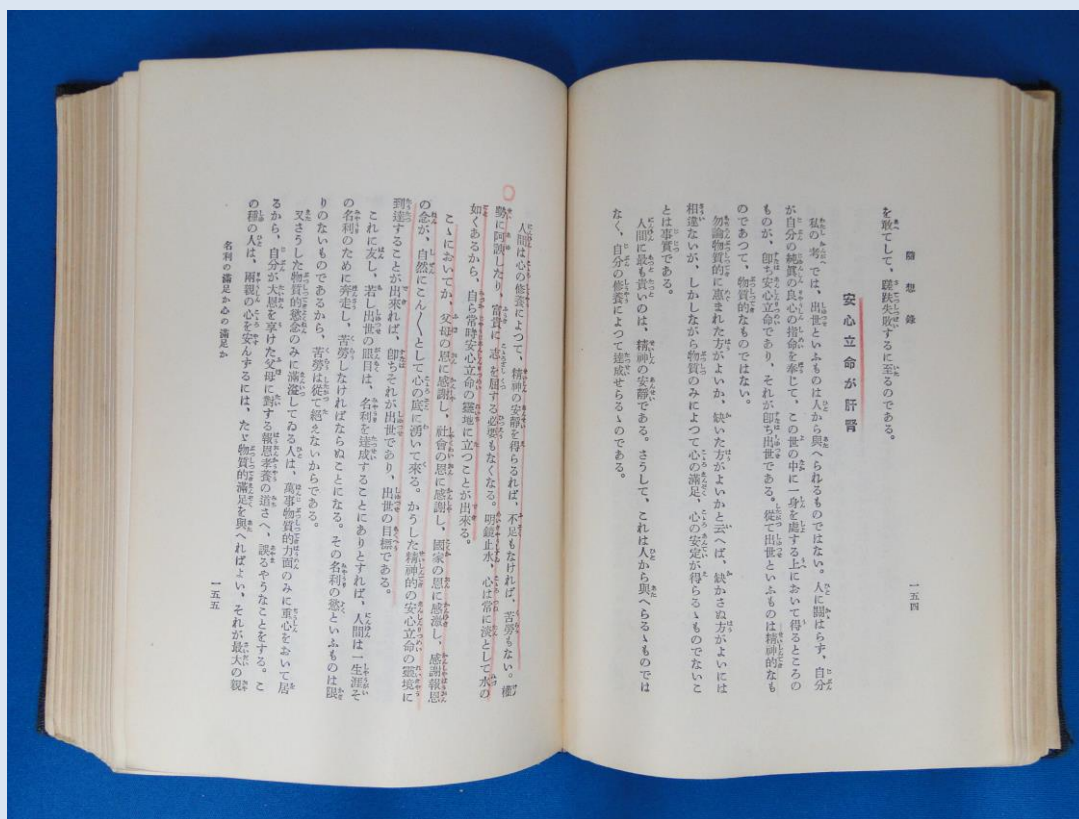 隨想錄
一五四
を敢てして、蹉跌失敗するに至るのである。
安心立命が肝腎
私の考では、出世といふものは人から與へられるものではない。人に關はらず、自分
が自分の純眞の良心の指命を奉じて、この世の中に一身を處する上において得るところの
ものが、卽ち安心立命であり、それが卽ち出世である。從て出世といふものは精神的なも
のであつて、物質的なものではない。
勿論物質的に惠まれた方がよいか、缺いた方がよいかと云へば、缺かさぬ方がよいには
相違ないが、しかしながら物質のみによつて心の滿足、心の安定が得らるゝものでないこ
とは事實である。
人間に最も貴いのは、精神の安靜である。さうして、これは人から與へらるゝものでは
なく、自分の修養によつて達成せらるゝのである。
人間は心の修養によつて、精神の安靜を得らるれば、不足もなければ、苦勞もない。權
勢に阿諛したり、富貴に志を屈する必要もなくなる。明鏡止水、心は常に淡として水の
如くあるから、自ら常時安心立命の靈地に立つことが出來る。
こゝにおいてか、父母の恩に感謝し、社會の恩に感謝し、國家の恩に感激し、感謝報恩
の念が、自然にこん〳〵として心の底に湧いて來る。かうした精神的の安心立命の靈境に
到達することが出來れば、卽ちそれが出世であり、出世の目標である。
これに反し、若し出世の眼目は、名利を達成することにありとすれば、人間は一生涯そ
の名利のために奔走し、苦勞しなければならぬことになる。その名利の慾といふものは限
りのないものであるから、苦勞は從て絕えないからである。
又さうした物質的慾念のみに滿溢してゐる人は、萬事物質的方面のみに重心をおいて居
るから、自分が大恩を享けた父母に對する報恩孝養の道さへ、誤るやうなことをする。こ
の種の人は、兩親の心を安んずるには、たゞ物質的滿足を與へればよい、それが最大の親
名利の滿足か心の滿足か
一五五